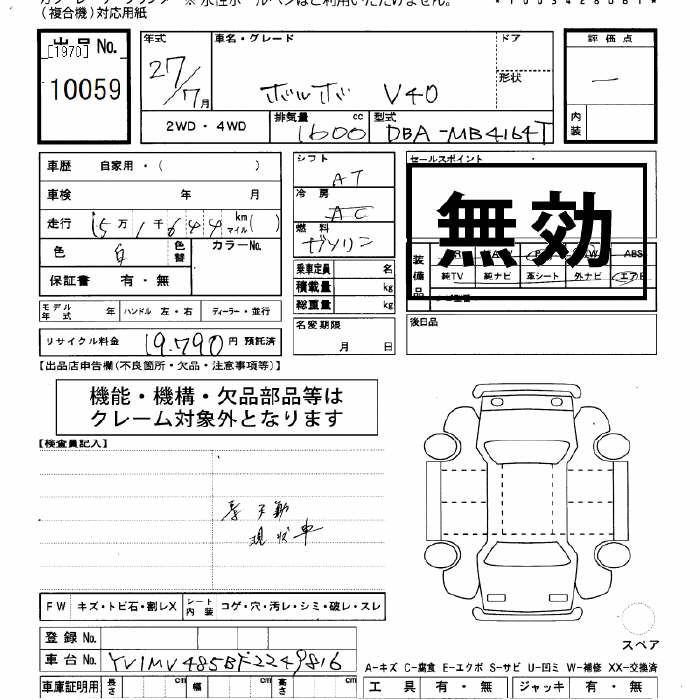 （複合機）対応用紙
出品 No.
[1970]
10059
年式
27/7月
車名・グレード
ボルボ V40
ドア
形状
2WD・4WD
排気量 cc
1600
型式
DBA-MB4164T
評価点
—
内装
車歴 自家用・（ ）
車検 年 月
走行 15万1千644 km マイル（ ）
色 白 色替 カラーNo.
保証書 有・無
シフト
AT
冷房
AC
燃料
ガソリン
乗車定員 名
積載量 kg
総重量 kg
セールスポイント
無効
装備品
ABS
純TV 純ナビ 革シート 外ナビ エアB
モデル年式 年 ハンドル 左・右 ディーラー・並行
リサイクル料金 19,790 円 預託済
名変期限
月 日
後日品
【出品店申告欄(不良箇所・欠品・注意事項等)】
機能・機構・欠品部品等は
クレーム対象外となります
【検査員記入】
不動
現状車
FW キズ・トビ石・割レX シート内装 コゲ・穴・汚レ・シミ・破レ・スレ
登録 No.
車台 No. YV1MV485BF2249816
車庫証明用 長さ cm 幅 cm 高さ cm
スペア
A-キズ C-腐食 E-エクボ S-サビ U-凹ミ W-補修 XX-交換済
工具 有・無 ジャッキ 有・無